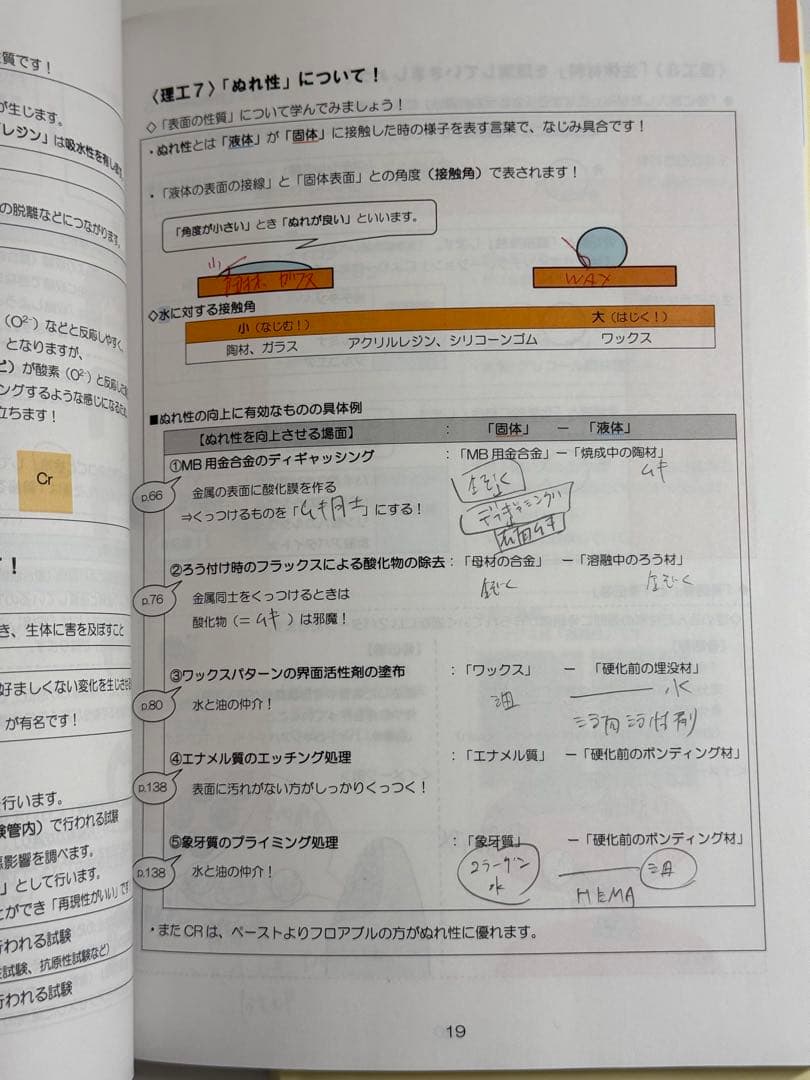 質です！
が生じます。
レジン」は吸水性を有します
の脱離などにつながります。
（O²⁻）などと反応しやすく、
となりますが、
ど）が酸素（O²⁻）と反応した
ングするような感じになるため
立ちます！
Cr
！
き、生体に害を及ぼすこと
好ましくない変化を生じさせる
が有名です！
行います。
験管内）で行われる試験
悪影響を調べます。
」として行います。
とができ「再現性がいい」です
行われる試験
試験、抗原性試験など）
行われる試験
〈理工７〉「ぬれ性」について！
◇「表面の性質」について学んでみましょう！
・ぬれ性とは「液体」が「固体」に接触した時の様子を表す言葉で、なじみ具合です！
・「液体の表面の接線」と「固体表面」との角度（接触角）で表されます！
「角度が小さい」とき「ぬれが良い」といいます。
小
陶材、ガラス
WAX
◇水に対する接触角
小（なじむ！） 大（はじく！）
陶材、ガラス アクリルレジン、シリコーンゴム ワックス
■ぬれ性の向上に有効なものの具体例
【ぬれ性を向上させる場面】 ： 「固体」 － 「液体」
①MB用金合金のディギャッシング ：「MB用金合金」－「焼成中の陶材」
p.66 金属の表面に酸化膜を作る
金ぞく ムキ
⇒くっつけるものを「ムキ同士」にする！
ディギャッシング
表面ムキ
②ろう付け時のフラックスによる酸化物の除去：「母材の合金」 －「溶融中のろう材」
p.76 金属同士をくっつけるときは
金ぞく 金ぞく
酸化物（＝ムキ）は邪魔！
③ワックスパターンの界面活性剤の塗布 ：「ワックス」 － 「硬化前の埋没材」
p.80 水と油の仲介！
油 水
④エナメル質のエッチング処理 ：「エナメル質」 －「硬化前のボンディング材」
p.138 表面に汚れがない方がしっかりくっつく！
⑤象牙質のプライミング処理 ：「象牙質」 －「硬化前のボンディング材」
p.138 水と油の仲介！
コラーゲン 油
水
HEMA
・またCRは、ペーストよりフロアブルの方がぬれ性に優れます。
19